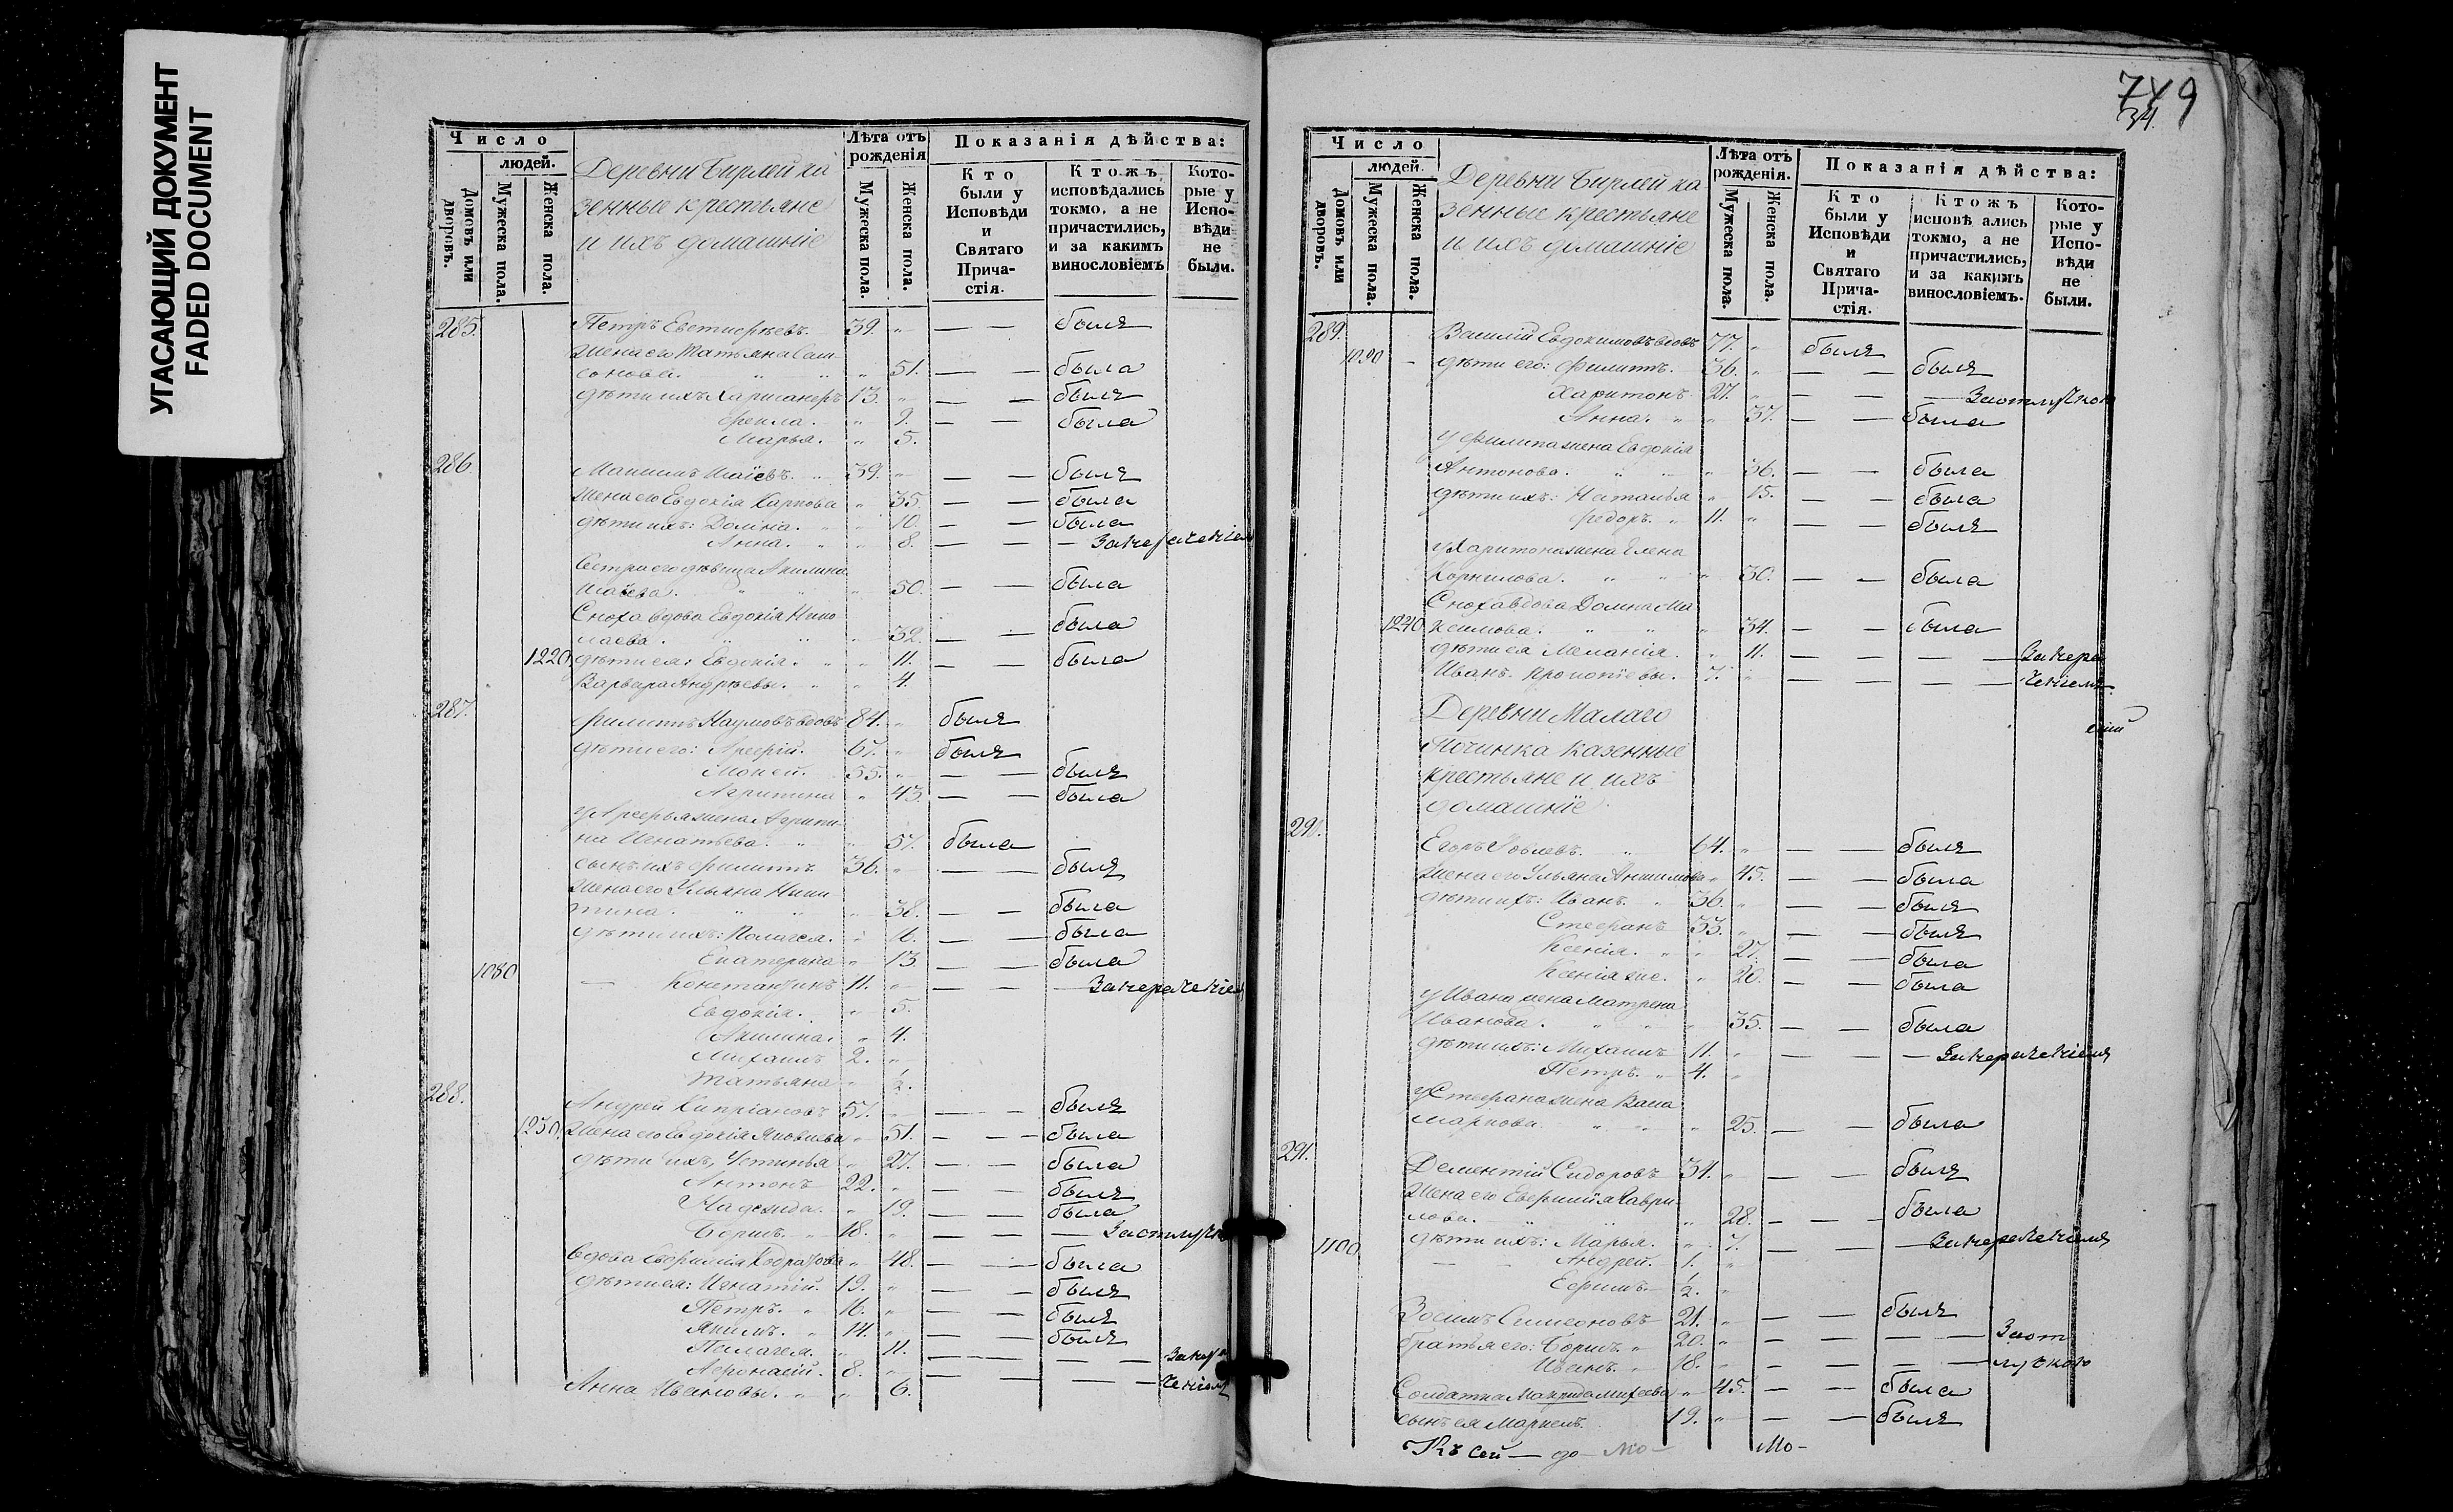 УГАСАЮЩИЙ ДОКУМЕНТ
FADED DOCUMENT
Число
людей.
Домовъ или дворовъ.
Мужеска пола.
Женска пола.
Деревни Бирлей ка
зенные крестьяне
и ихъ домашніе
Лѣта отъ рожденія
Мужеска пола.
Женска пола.
Показанія дѣйства:
Кто были у Исповѣди и Святаго Прича- стія.
Ктожъ исповѣдались токмо, а не причастились, и за какимъ винословіемъ
Кото- рые у Испо- вѣди не были.
285. Петръ Евстифѣевъ. 39. „ — — былъ
Жена его Татьяна Сам-
сонова. „ „ „ 51. — — была
дѣти ихъ 13. „ — — былъ
Фекла. „ 9. — — была
Марья. „ 5.
286. 39. „ — — былъ
Жена его Евдокія Карпова „ 35. — — была
дѣти ихъ: Домна. „ „ 10. — — была
Анна. „ „ 8. — — — Замерачкіем
Сестра его дѣвица Акилина
„ 50. — — была
Сноха вдова Евдокія Нико
лаева. „ „ „ 32. — — была
1220 дѣти ея: Евдокія. „ „ 11. — — была
Варвара Андрѣевы. „ „ 4.
287. Филиппъ Наумовъ вдовъ 84. „ былъ
дѣти его: Арефій. 67. „ былъ
Мокей. 55. „ — — былъ
Агрипина „ 43. — — была
у Арефья жена Агрипи-
на Игнатьева. „ „ 57. была
сынъ ихъ Филиппъ 36. „ — — былъ
Жена его Ульяна Ники
тина. „ „ „ 38. — — была
дѣти ихъ: Пелагея. „ 16. — — была
Екатерина „ 13. — — была
1080 — Константинъ 11. „ — —
Евдокія. „ 5.
Акилина. „ 4.
Михаилъ 2. „
Татьяна „ ½.
288. Андрей Кипріановъ 57. „ — — былъ
1230. Жена его Евдокія Яковлева „ 51. — — — была
дѣти ихъ, Устинья „ 27. — — была
Антонъ 22. „ — — былъ
Надежда. „ 19. — — была
Борисъ. „ 18. „ — — —
Вдова Евфимія „ 48. — — была
дѣти ея: Игнатій. 19. „ — — былъ
Петръ. „ 16. „ — — былъ
Якимъ. „ 14. „ — — былъ
Пелагея. „ 11. — — — —
Афонасій. 8. „ — — — —
Анна Ивановы. „ „ 6.
749
34.
Число
людей.
Домовъ или дворовъ.
Мужеска пола.
Женска пола.
Деревни Бирлей ка
зенные крестьяне
и ихъ домашніе
Лѣта отъ рожденія.
Мужеска пола.
Женска пола.
Показанія дѣйства:
Кто были у Исповѣди и Святаго Прича- стія.
Ктожъ исповѣ ались токмо, а не причастились, и за какимъ винословіемъ.
Кото- рые у Испо- вѣди не были.
289. Василій Евдокимовъ вдовъ 77. „ былъ
1090 — дѣти его: Филиппъ. 36. „ — — былъ
Харитонъ 27. „ — — — Заотлучкою
Анна. „ „ 37. — — была
у Филипа жена Евдокія
Антонова. „ „ „ 36. — — была
дѣти ихъ: Наталья „ 15. — — была
Федоръ. „ 11. „ — — былъ
у Харитона жена Елена
Корнилова. „ „ „ 30. — — была
Сноха вдова Домна Ма
1240 ксимова. „ „ „ 34. — — была
дѣти ея Меланія. „ 11. — — — —
Иванъ. Прокопіевы. 7. „ — — — —
Деревни Малаго
Починка казенные
крестьяне и ихъ
домашніе
290. Егоръ 64. „ — — былъ
Жена его Ульяна „ 45. — — была
дѣти ихъ: Иванъ. „ 36. „ — — былъ
Стефанъ 33. „ — — былъ
Ксенія. „ „ 27. — — была
Ксенія же. „ 20. — — была
у Ивана жена Матрена
Иванова. „ „ „ 35. — — была
дѣти ихъ: Михаилъ 11. „ — — —
Петръ. „ 4. „
у Стефана жена Васа
Маркова. „ „ „ 25. — — была
291. Дементій Сидоровъ 31. „ — — былъ
Жена его Евфимія Гаври
лова. „ „ „ 28. — — — была
1100 дѣти ихъ: Марья. „ 7. — — —
— — Андрей. 1. „
Ефимъ. ½. „
Зосимъ Симеоновъ 21. „ — — былъ
братья его: Борисъ „ 20. „ — — — — Заот
Иванъ. „ 18. „ — — — — лучкою
Солдатка Макрида Михеева „ 45. — — была
сынъ ея Маркелъ. 19. „ — — былъ
Къ сей — до — мо — мо-